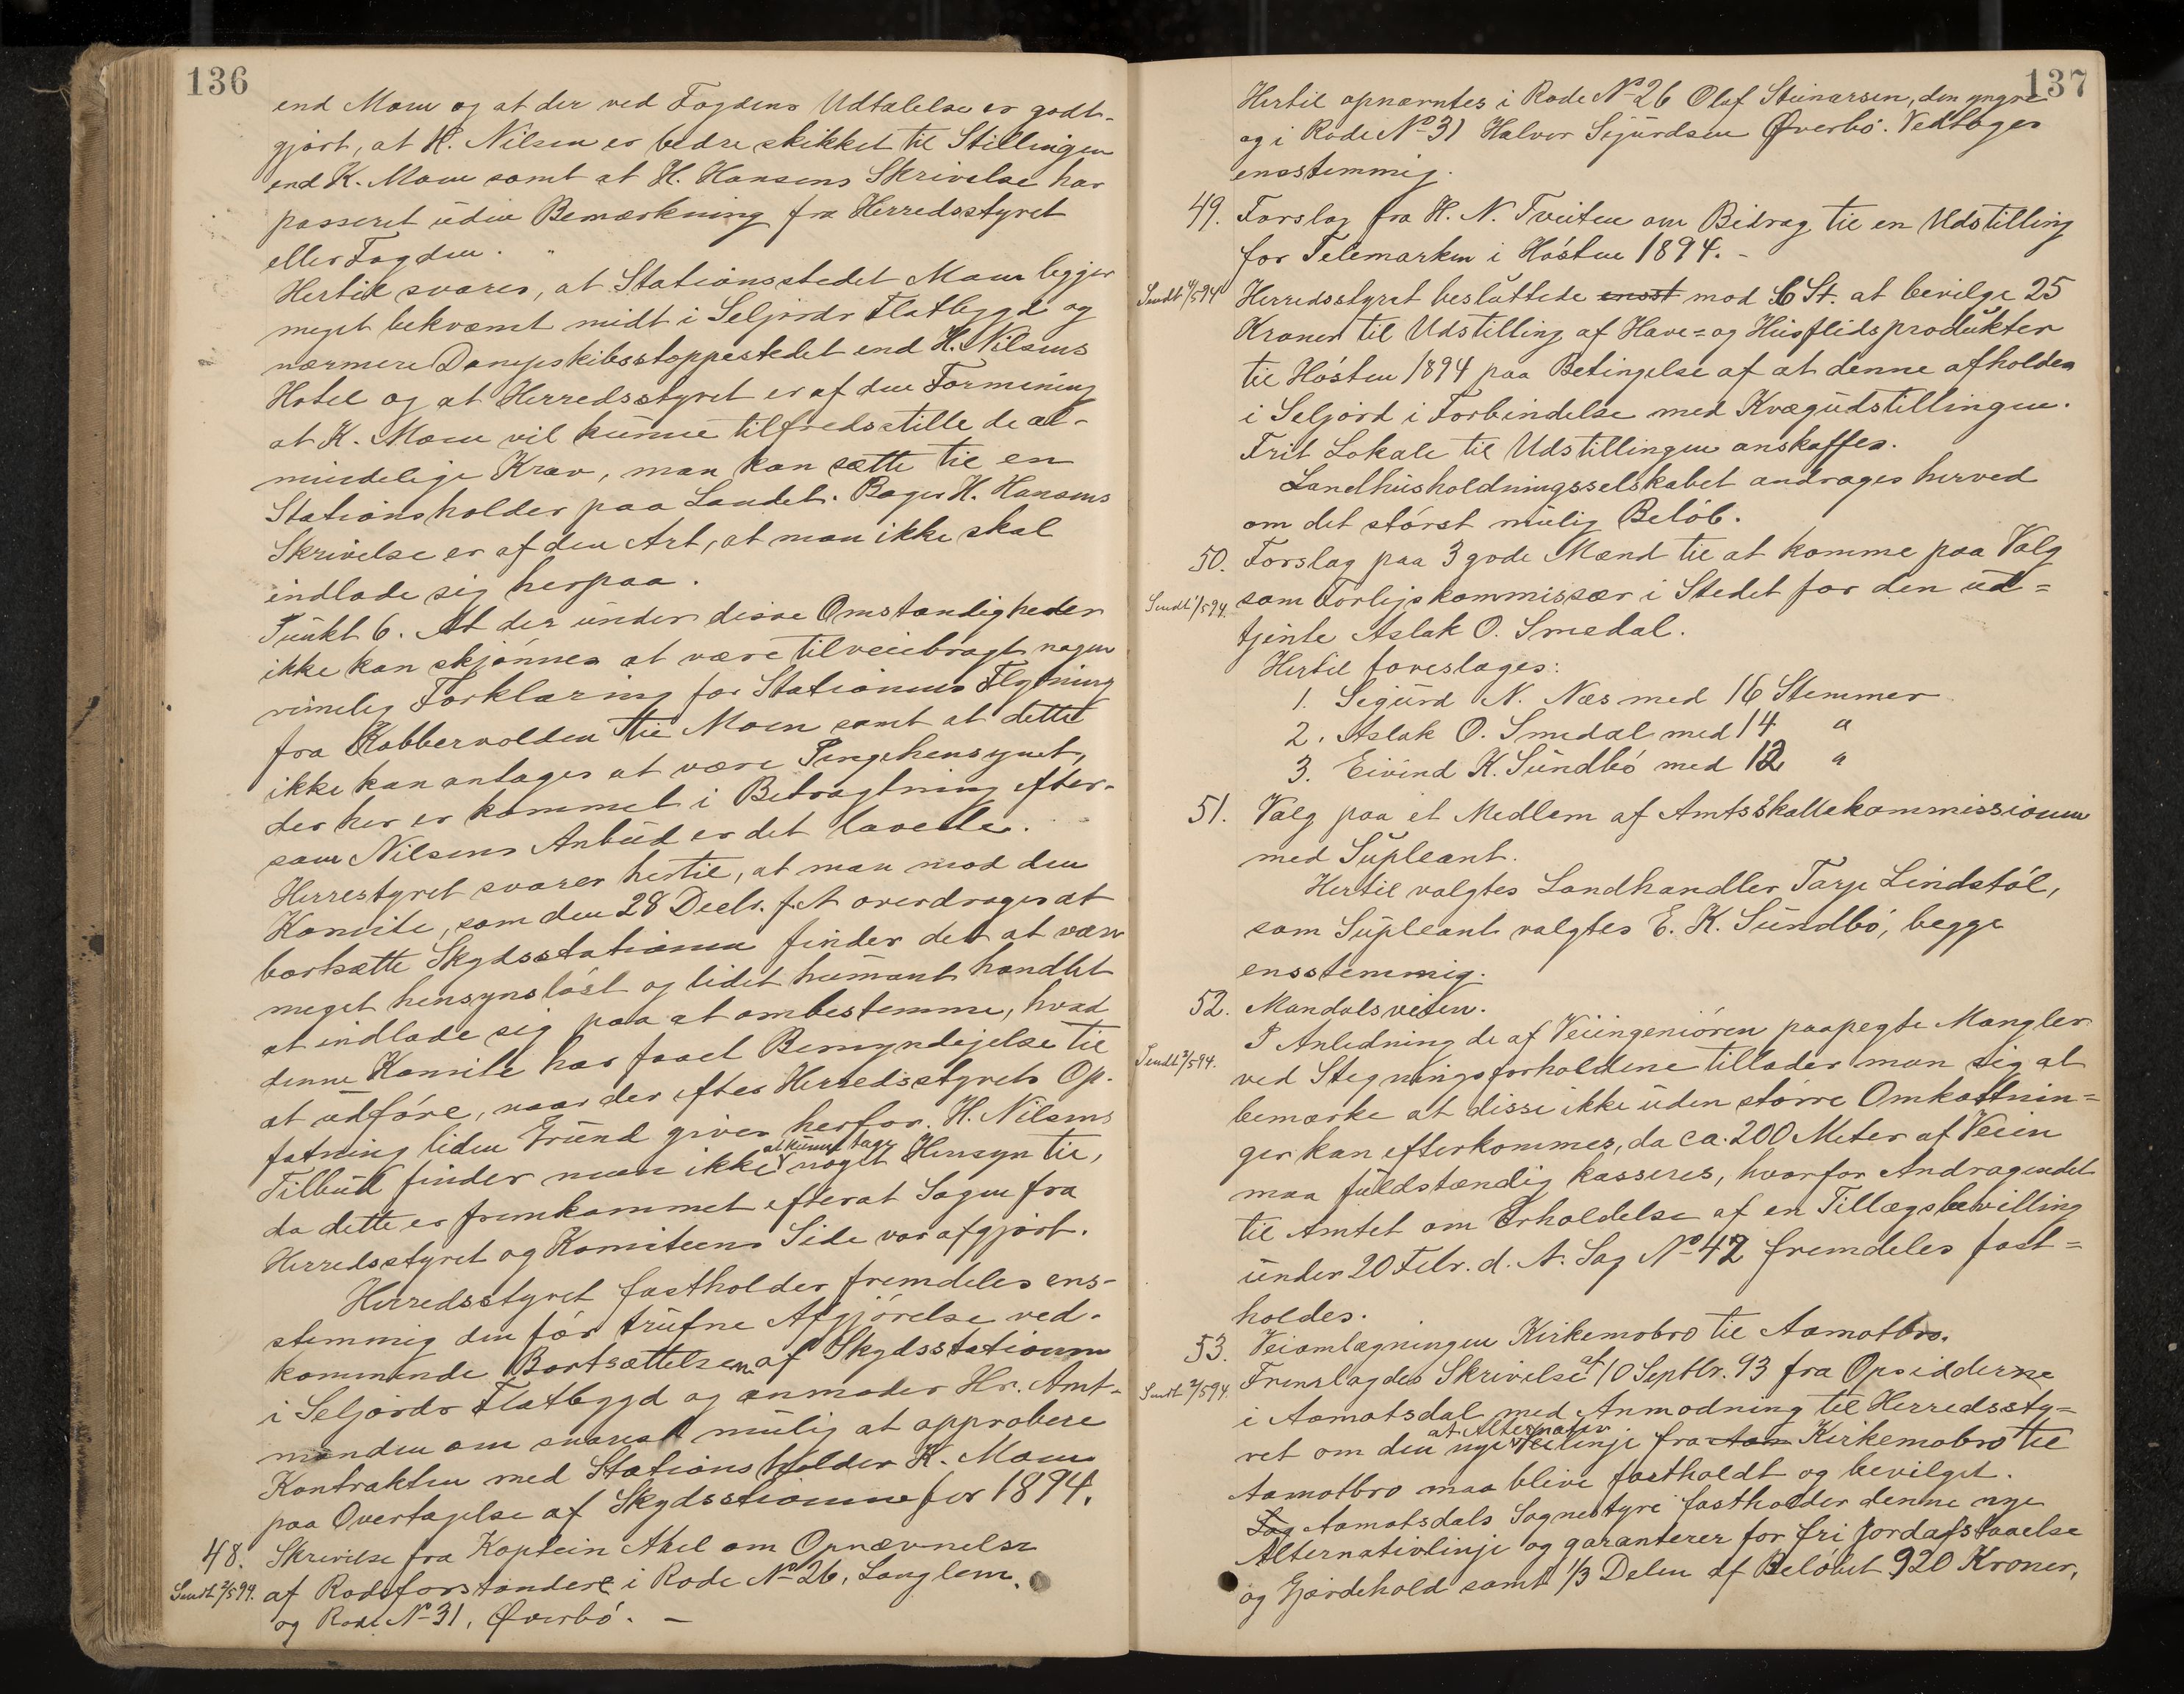 136
end Moen og at der ved Fogdens Udtalelse er godt-
gjort, at H. Nilsen er bedre skikket til Stillingen
end K. Moen samt at H. Hansens Skrivelse har
passeret uden Bemærkning fra Herredsstyret
eller Fogden.
Hertil svares, at Stationsstedet Moen ligger
meget bekvæmt midt i Seljords Flatbygd og
nærmere Dampskibsstoppestedet end H. Nilsens
Hotel og at Herredsstyret er af den Formening
at K. Moen vil kunne tilfredsstille de al-
mindelige Krav, man kan sætte til en
Stationsholder paa Landet. Bager H. Hansens
Skrivelse er af den Art, at man ikke skal
indlade sig herpaa.
Punkt 6. At der under disse Omstændigheder
ikke kan skjønnes at være tilveiebragt nogen
rimelig Forklaring for Stationens Flytning
fra Kobbervolden til Moen samt at dette
ikke kan antages at være Pengehensynet,
der her er kommet i Betragtning efter-
som Nilsens Anbud er det laveste.
Herrestyret svarer hertil, at man mod den
Komite, som den 28 Decbr. f. A overdroges at
bortsætte Skydsstationen finder det at være
meget hensynsløst og lidet humant handlet
at indlade sig paa at ombestemme, hvad
denne Komite har faaet Bemyndigelse til
at udføre, naar der efter Herredsstyrets Op-
fatning liden Grund gives herfor. H. Nilsens
Tilbud finder man ikke at kunne tage noget Hensyn til,
da dette er fremkommet efterat Sagen fra
Herredsstyret og Komiteens Side var afgjort.
Herredsstyret fastholder fremdeles ens-
stemmig den før trufne Afgjørelse ved-
kommende Bortsættelsen af Skydsstationen
i Seljords Flatbygd og anmoder Hr. Amt-
manden om snarest mulig at approbere
Kontrakten med Stationsholder K. Moen
paa Overtagelse af Skydsstionen for 1894.
48. Skrivelse fra Kaptein Abel om Opnævnelse
Sendt 2/5 94. af Rodeforstandere i Rode No 26, Langlem,
og Rode No 31, Øverbø. –
137
Hertil opnævntes i Rode No 26 Olaf Steinarsen, den yngre
og i Rode No 31 Halvor Sigurdsen Øverbø. Vedtoges
ensstemmig.
49. Forslag fra H. N. Tveiten om Bidrag til en Udstilling
for Telemarken i Høsten 1894. –
Sendt 4/5 94 Herredsstyret besluttede ensst mod 6 St. at bevilge 25
Kroner til Udstilling af Have= og Husflidsprodukter
til Høsten 1894 paa Betingelse af at denne afholdes
i Seljord i Forbindelse med Kvægudstillingen.
Frit Lokale til Udstillingen anskaffes.
Landhusholdningsselskabet andrages herved
om det størst mulig Beløb.
50. Forslag paa 3 gode Mænd til at komme paa Valg
Sendt 1/5 94. som Forligskommissær i Stedet for den ud=
tjente Aslak O. Smedal.
Hertil foreslages:
1. Sigurd N. Næs med 16 Stemmer
2. Aslak O. Smedal med 14 "
3. Eivind K. Sundbø med 12 "
51. Valg paa et Medlem af Amtsskattekommissionen
med Supleant.
Hertil valgtes Landhandler Tarje Lindstøl,
som Supleant valgtes E. K. Sundbø, begge
ensstemmig.
52. Mandalsveien.
I Anledning de af Veiingeniøren paapegte Mangler
Sendt 2/5 94. ved Stegningsforholdene tillader man sig at
bemærke at disse ikke uden større Omkostnin=
ger kan efterkommes, da ca. 200 Meter af Veien
maa fuldstændig kasseres, hvorfor Andragendet
til Amtet om Erholdelse af en Tillægsbevilling
under 20 Febr. d. A. Sag No 42 fremdeles fast=
holdes.
53. Veiomlægningen Kirkemobro til Aamotbro.
Sendt 2/5 94. Fremlagdes Skrivelse af 10 Septbr. 93 fra Opsidderne
i Aamotsdal med Anmodning til Herredssty=
ret om den nye at Alternativ Veilinje fra Aam Kirkemobro til
Aamotbro maa blive fastholdt og bevilget.
Sag Aamotsdals Sognestyre fastholder denne nye
Alternativlinje og garanterer for fri Jordafstaaelse
og Gjerdehold samt 1/3 Delen af Beløbet 920 Kroner,